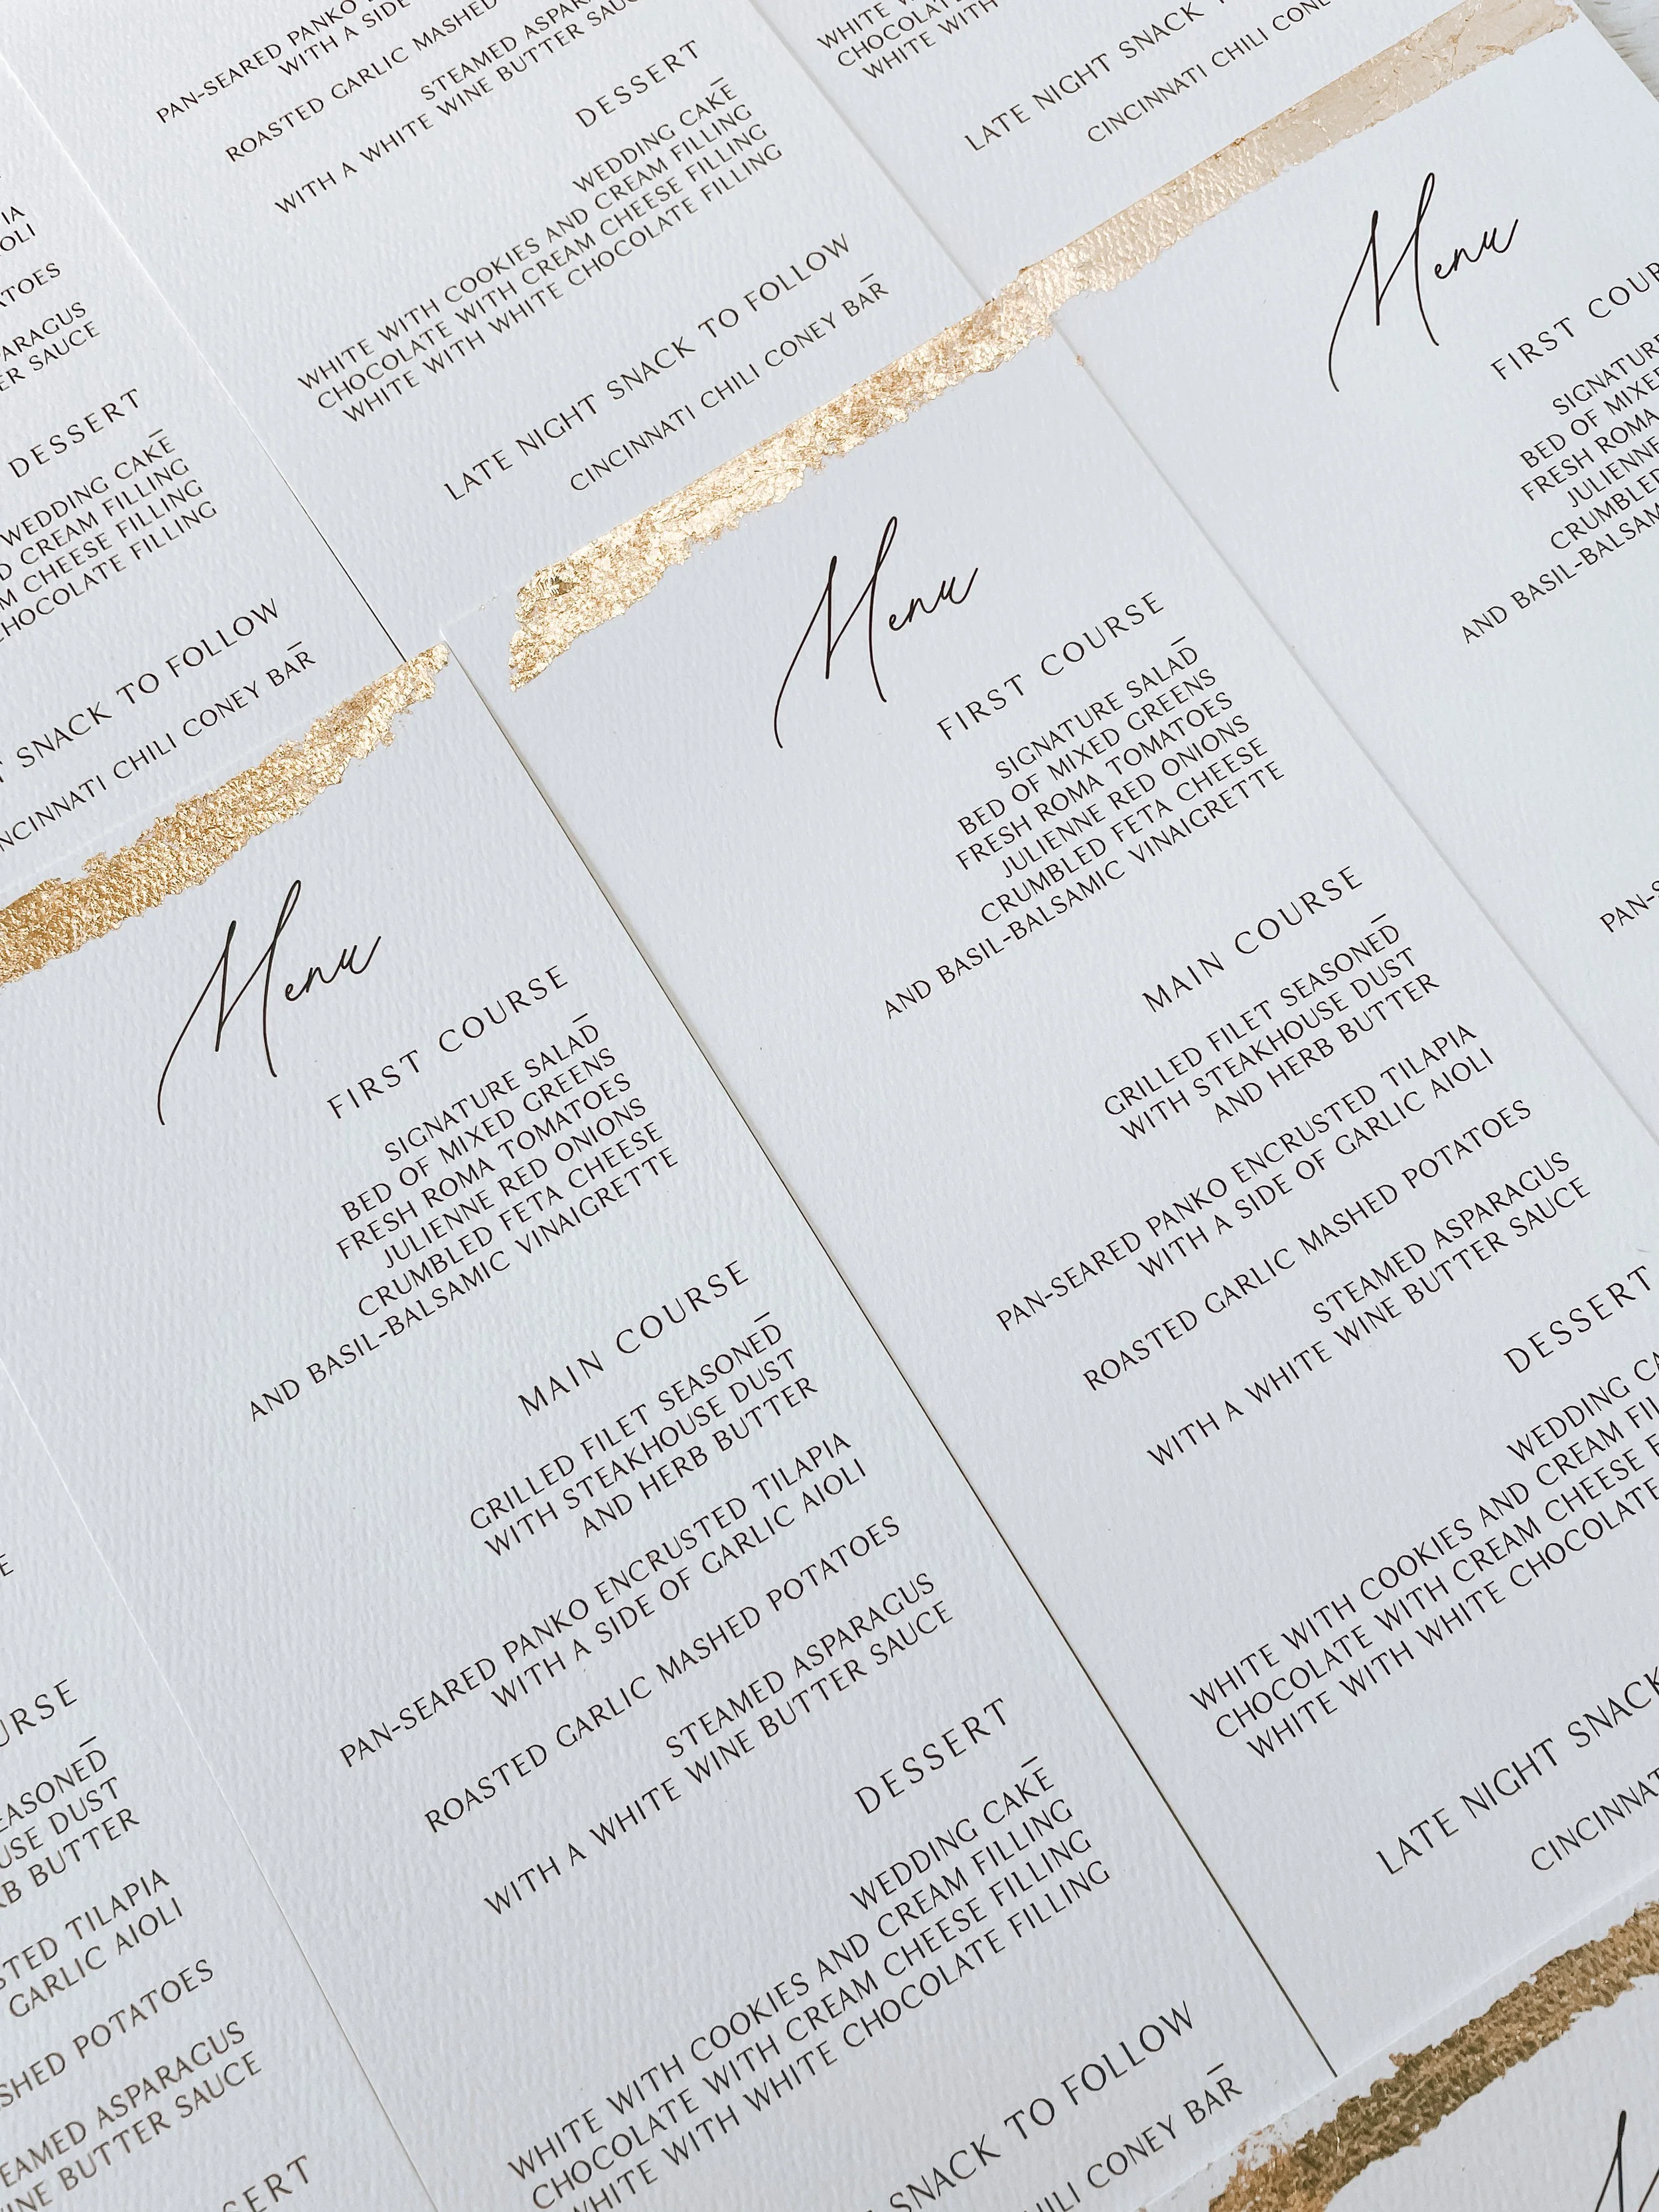 PAN-SEARED PANKO
WITH A SIDE
ROASTED GARLIC MASHED
STEAMED
WITH A WHITE WINE BUTTER
DESSERT
WEDDING CAKE
WHITE WITH COOKIES AND CREAM FILLING
CHOCOLATE WITH CREAM CHEESE FILLING
WHITE WITH WHITE CHOCOLATE FILLING
LATE NIGHT SNACK TO FOLLOW
CINCINNATI CHILI CONEY BAR
WHITE
WHITE WITH
LATE NIGHT SNACK
CINCINNATI CHILI
SAUCE
DESSERT
WEDDING CAKE
CREAM FILLING
CHEESE FILLING
CHOCOLATE FILLING
SNACK TO FOLLOW
CHILI CONEY BAR
Menu
FIRST COURSE
SIGNATURE SALAD
BED OF MIXED GREENS
FRESH ROMA TOMATOES
JULIENNE RED ONIONS
CRUMBLED FETA CHEESE
AND BASIL-BALSAMIC VINAIGRETTE
MAIN COURSE
GRILLED FILET SEASONED
WITH STEAKHOUSE DUST
AND HERB BUTTER
PAN-SEARED PANKO ENCRUSTED TILAPIA
WITH A SIDE OF GARLIC AIOLI
ROASTED GARLIC MASHED POTATOES
STEAMED ASPARAGUS
WITH A WHITE WINE BUTTER SAUCE
DESSERT
WEDDING CAKE
WHITE WITH COOKIES AND CREAM FILLING
CHOCOLATE WITH CREAM CHEESE FILLING
WHITE WITH WHITE CHOCOLATE FILLING
SNACK TO FOLLOW
CONEY BAR
Menu
FIRST COURSE
SIGNATURE SALAD
BED OF MIXED GREENS
FRESH ROMA TOMATOES
JULIENNE RED ONIONS
CRUMBLED FETA CHEESE
AND BASIL-BALSAMIC VINAIGRETTE
MAIN COURSE
GRILLED FILET SEASONED
WITH STEAKHOUSE DUST
AND HERB BUTTER
PAN-SEARED PANKO ENCRUSTED TILAPIA
WITH A SIDE OF GARLIC AIOLI
ROASTED GARLIC MASHED POTATOES
STEAMED ASPARAGUS
WITH A WHITE WINE BUTTER SAUCE
DESSERT
WEDDING
WHITE WITH COOKIES AND CREAM
CHOCOLATE WITH CREAM CHEESE
WHITE WITH WHITE CHOCOLATE
LATE NIGHT SNACK
Menu
FIRST
SIGNATURE
BED OF MIXED
FRESH ROMA
JULIENNE
CRUMBLED
AND
DUST
BUTTER
TILAPIA
GARLIC AIOLI
POTATOES
ASPARAGUS
BUTTER SAUCE